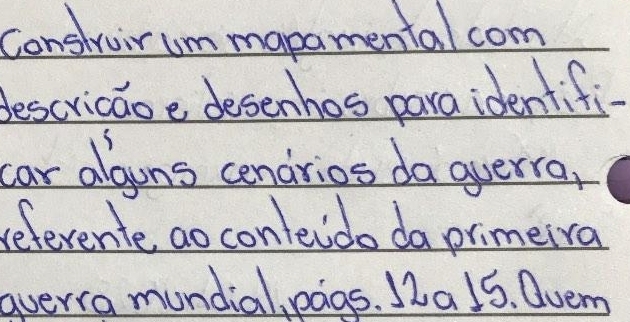 Construir um mapa mental com
descrição e desenhos para identifi-
car alguns cenários da guerra,
referente ao conteúdo da primeira
guerra mundial, págs. 12 a 15. Quem